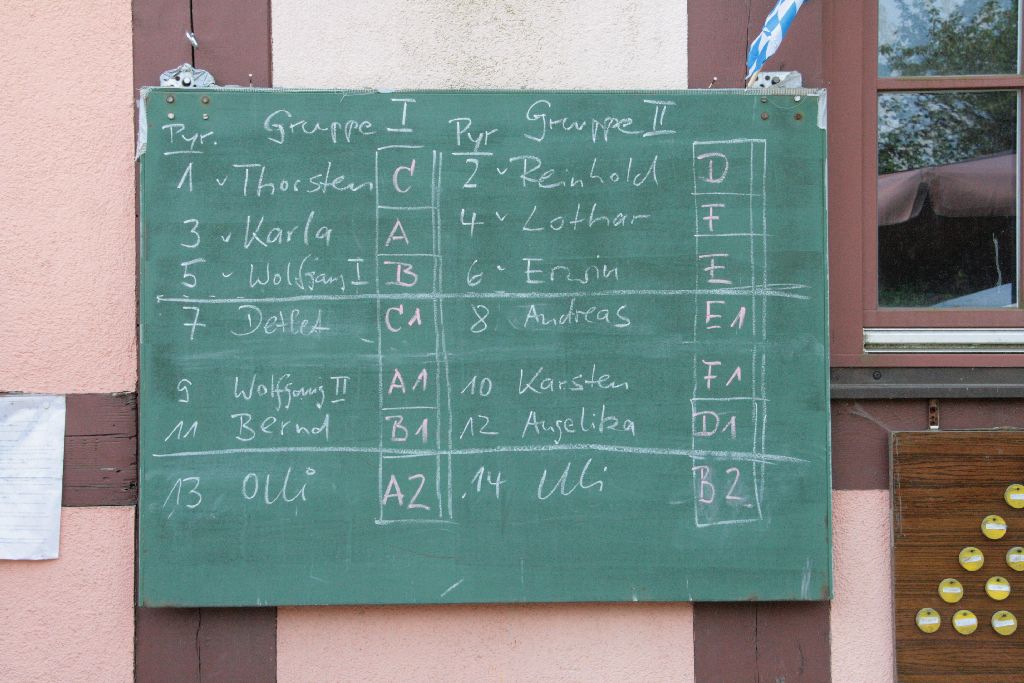 Pyr. Gruppe I Pyr Gruppe II
1 Thorsten C 2 Reinhold D
3 Karla A 4 Lothar F
5 Wolfgang I B 6 Erwin E
7 Detlef C1 8 Andreas E1
9 Wolfgang II A1 10 Karsten F1
11 Bernd B1 12 Angelika D1
13 Olli A2 14 Ulli B2